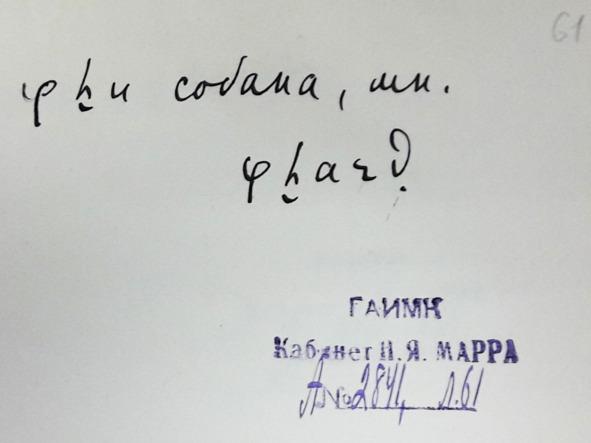 61
собака, мн.
ГАИМК
Кабинет Н.Я. МАРРА
А №2841, л.61